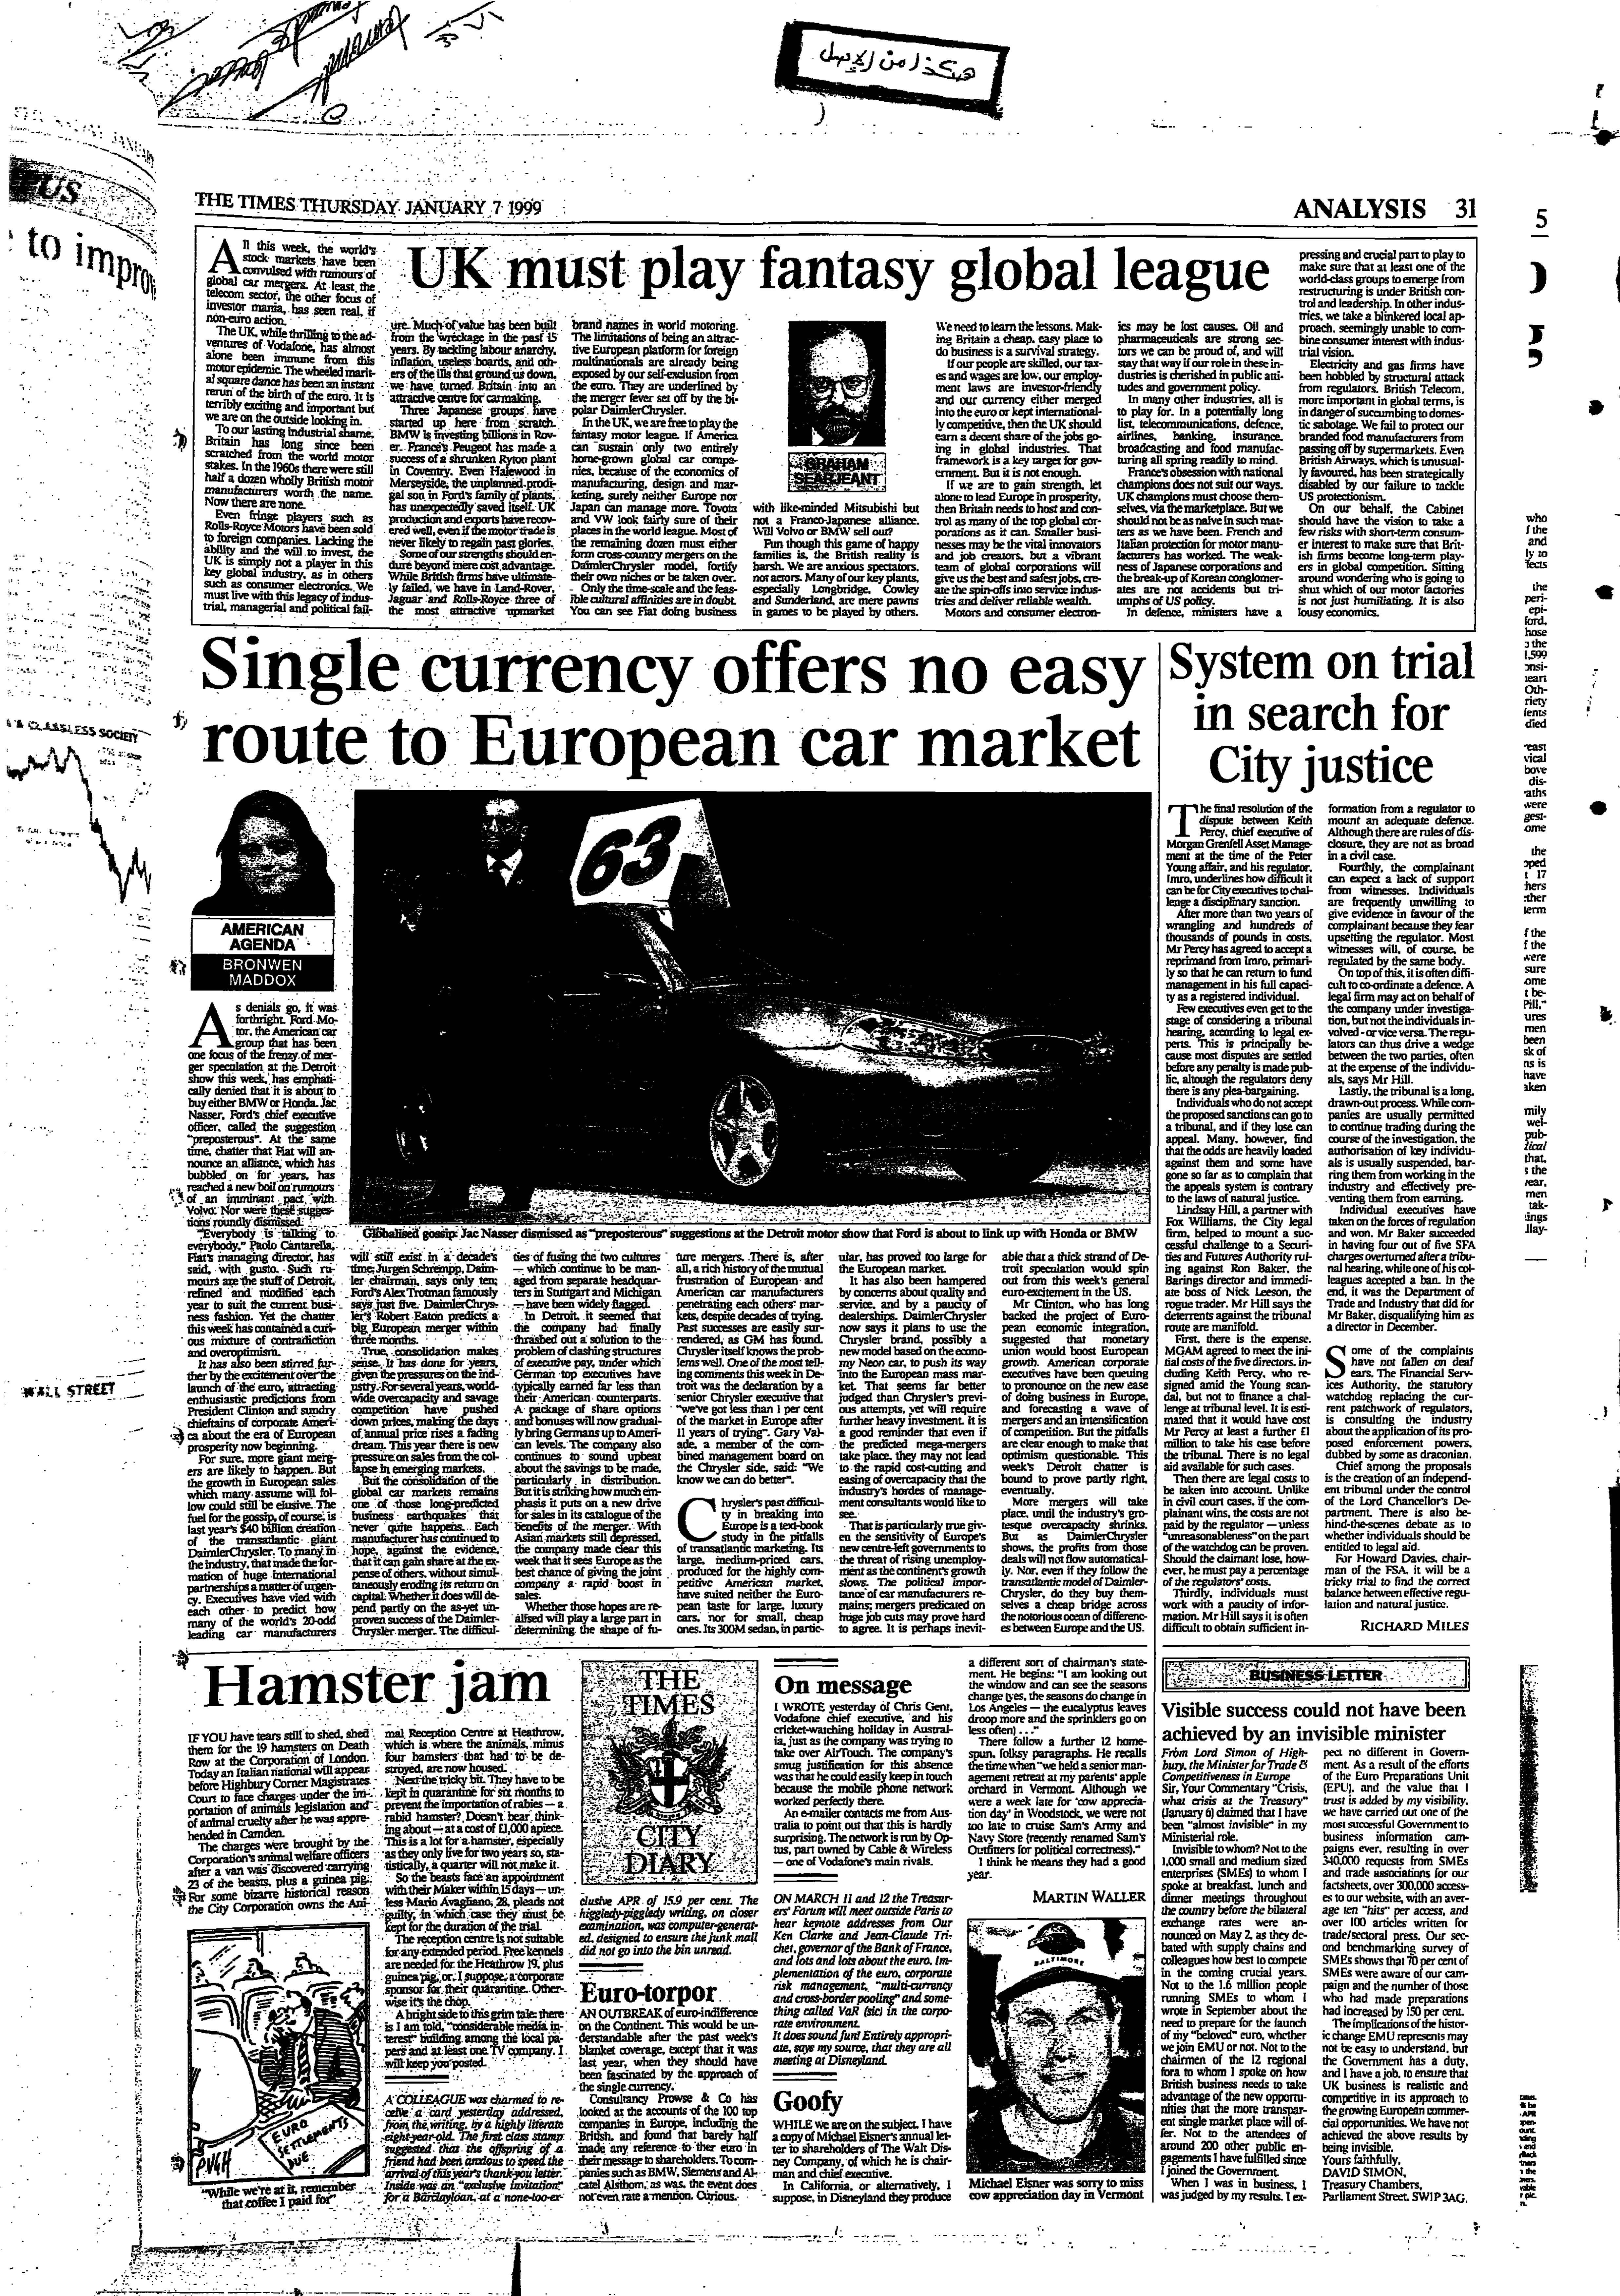 هكذا من الأصل
THE TIMES THURSDAY JANUARY 7 1999
ANALYSIS 31
UK must play fantasy global league
All this week, the world's
stock markets have been
convulsed with rumours of
global car mergers. At least the
telecom sector, the other focus of
investor mania, has seen real, if
non-euro action.
The UK, while thrilling to the ad-
ventures of Vodafone, has almost
alone been immune from this
motor epidemic. The wheeled marit-
al square dance has been an instant
rerun of the birth of the euro. It is
terribly exciting and important but
we are on the outside looking in.
To our lasting industrial shame,
Britain has long since been
scratched from the world motor
stakes. In the 1960s there were still
half a dozen wholly British motor
manufacturers worth the name.
Now there are none.
Even fringe players such as
Rolls-Royce Motors have been sold
to foreign companies. Lacking the
ability and the will to invest, the
UK is simply not a player in this
key global industry, as in others
such as consumer electronics. We
must live with this legacy of indus-
trial, managerial and political fail-
ure. Much of value has been built
from the wreckage in the past 15
years. By tackling labour anarchy,
inflation, useless boards, and oth-
ers of the ills that ground us down,
we have turned Britain into an
attractive centre for carmaking.
Three Japanese groups have
started up here from scratch.
BMW is investing billions in Rov-
er. France's Peugeot has made a
success of a shrunken Ryton plant
in Coventry. Even Halewood in
Merseyside, the unplanned prodi-
gal son in Ford's family of plants,
has unexpectedly saved itself. UK
production and exports have recov-
ered well, even if the motor trade is
never likely to regain past glories.
Some of our strengths should en-
dure beyond mere cost advantage.
While British firms have ultimate-
ly failed, we have in Land-Rover,
Jaguar and Rolls-Royce three of
the most attractive upmarket
brand names in world motoring.
The limitations of being an attrac-
tive European platform for foreign
multinationals are already being
exposed by our self-exclusion from
the euro. They are underlined by
the merger fever set off by the bi-
polar DaimlerChrysler.
In the UK, we are free to play the
fantasy motor league. If America
can sustain only two entirely
home-grown global car compa-
nies, because of the economics of
manufacturing, design and mar-
keting, surely neither Europe nor
Japan can manage more. Toyota
and VW look fairly sure of their
places in the world league. Most of
the remaining dozen must either
form cross-country mergers on the
DaimlerChrysler model, fortify
their own niches or be taken over.
Only the time-scale and the feas-
ible cultural affinities are in doubt.
You can see Fiat doing business
GRAHAM
SEARJEANT
with like-minded Mitsubishi but
not a Franco-Japanese alliance.
Will Volvo or BMW sell out?
Fun though this game of happy
families is, the British reality is
harsh. We are anxious spectators,
not actors. Many of our key plants,
especially Longbridge, Cowley
and Sunderland, are mere pawns
in games to be played by others.
We need to learn the lessons. Mak-
ing Britain a cheap, easy place to
do business is a survival strategy.
If our people are skilled, our tax-
es and wages are low, our employ-
ment laws are investor-friendly
and our currency either merged
into the euro or kept international-
ly competitive, then the UK should
earn a decent share of the jobs go-
ing in global industries. That
framework is a key target for gov-
ernment. But it is not enough.
If we are to gain strength, let
alone to lead Europe in prosperity,
then Britain needs to host and con-
trol as many of the top global cor-
porations as it can. Smaller busi-
nesses may be the vital innovators
and job creators, but a vibrant
team of global corporations will
give us the best and safest jobs, cre-
ate the spin-offs into service indus-
tries and deliver reliable wealth.
Motors and consumer electron-
ics may be lost causes. Oil and
pharmaceuticals are strong sec-
tors we can be proud of, and will
stay that way if our role in these in-
dustries is cherished in public atti-
tudes and government policy.
In many other industries, all is
to play for. In a potentially long
list, telecommunications, defence,
airlines, banking, insurance,
broadcasting and food manufac-
turing all spring readily to mind.
France's obsession with national
champions does not suit our ways.
UK champions must choose them-
selves, via the marketplace. But we
should not be as naive in such mat-
ters as we have been. French and
Italian protection for motor manu-
facturers has worked. The weak-
ness of Japanese corporations and
the break-up of Korean conglomer-
ates are not accidents but tri-
umphs of US policy.
In defence, ministers have a
pressing and crucial part to play to
make sure that at least one of the
world-class groups to emerge from
restructuring is under British con-
trol and leadership. In other indus-
tries, we take a blinkered local ap-
proach, seemingly unable to com-
bine consumer interest with indus-
trial vision.
Electricity and gas firms have
been hobbled by structural attack
from regulators. British Telecom,
more important in global terms, is
in danger of succumbing to domes-
tic sabotage. We fail to protect our
branded food manufacturers from
passing off by supermarkets. Even
British Airways, which is unusual-
ly favoured, has been strategically
disabled by our failure to tackle
US protectionism.
On our behalf, the Cabinet
should have the vision to take a
few risks with short-term consum-
er interest to make sure that Brit-
ish firms become long-term play-
ers in global competition. Sitting
around wondering who is going to
shut which of our motor factories
is not just humiliating. It is also
lousy economics.
Single currency offers no easy
route to European car market
AMERICAN
AGENDA
BRONWEN
MADDOX
63
Globalised gossip: Jac Nasser dismissed as "preposterous" suggestions at the Detroit motor show that Ford is about to link up with Honda or BMW
As denials go, it was
forthright. Ford Mo-
tor, the American car
group that has been
one focus of the frenzy of mer-
ger speculation at the Detroit
show this week, has emphati-
cally denied that it is about to
buy either BMW or Honda. Jac
Nasser, Ford's chief executive
officer, called the suggestion
"preposterous". At the same
time, chatter that Fiat will an-
nounce an alliance, which has
bubbled on for years, has
reached a new boil on rumours
of an imminant pact with
Volvo. Nor were these sugges-
tions roundly dismissed.
"Everybody is talking to
everybody," Paolo Cantarella,
Fiat's managing director, has
said, with gusto. Such ru-
mours are the stuff of Detroit,
refined and modified each
year to suit the current busi-
ness fashion. Yet the chatter
this week has contained a curi-
ous mixture of contradiction
and overoptimism.
It has also been stirred fur-
ther by the excitement over the
launch of the euro, attracting
enthusiastic predictions from
President Clinton and sundry
chieftains of corporate Ameri-
ca about the era of European
prosperity now beginning.
For sure, more giant merg-
ers are likely to happen. But
the growth in European sales
which many assume will fol-
low could still be elusive. The
fuel for the gossip, of course, is
last year's $40 billion creation
of the transatlantic giant
DaimlerChrysler. To many in
the industry, that made the for-
mation of huge international
partnerships a matter of urgen-
cy. Executives have vied with
each other to predict how
many of the world's 20-odd
leading car manufacturers
will still exist in a decade's
time; Jurgen Schrempp, Daim-
ler chairman, says only ten;
Ford's Alex Trotman famously
says just five. DaimlerChrys-
ler's Robert Eaton predicts a
big European merger within
three months.
True, consolidation makes
sense. It has done for years,
given the pressures on the ind-
ustry. For several years, world-
wide overcapacity and savage
competition have pushed
down prices, making the days
of annual price rises a fading
dream. This year there is new
pressure on sales from the col-
lapse in emerging markets.
But the consolidation of the
global car markets remains
one of those long-predicted
business earthquakes that
never quite happens. Each
manufacturer has continued to
hope, against the evidence,
that it can gain share at the ex-
pense of others, without simul-
taneously eroding its return on
capital. Whether it does will de-
pend partly on the as-yet un-
proven success of the Daimler-
Chrysler merger. The difficul-
ties of fusing the two cultures
— which continue to be man-
aged from separate headquar-
ters in Stuttgart and Michigan
— have been widely flagged.
In Detroit, it seemed that
the company had finally
thrashed out a solution to the
problem of clashing structures
of executive pay, under which
German top executives have
typically earned far less than
their American counterparts.
A package of share options
and bonuses will now gradual-
ly bring Germans up to Ameri-
can levels. The company also
continues to sound upbeat
about the savings to be made,
particularly in distribution.
But it is striking how much em-
phasis it puts on a new drive
for sales in its catalogue of the
benefits of the merger. With
Asian markets still depressed,
the company made clear this
week that it sees Europe as the
best chance of giving the joint
company a rapid boost in
sales.
Whether those hopes are re-
alised will play a large part in
determining the shape of fu-
ture mergers. There is, after
all, a rich history of the mutual
frustration of European and
American car manufacturers
penetrating each others' mar-
kets, despite decades of trying.
Past successes are easily sur-
rendered, as GM has found.
Chrysler itself knows the prob-
lems well. One of the most tell-
ing comments this week in De-
troit was the declaration by a
senior Chrysler executive that
"we've got less than 1 per cent
of the market in Europe after
11 years of trying". Gary Val-
ade, a member of the com-
bined management board on
the Chrysler side, said: "We
know we can do better".
Chrysler's past difficul-
ty in breaking into
Europe is a text-book
study in the pitfalls
of transatlantic marketing. Its
large, medium-priced cars,
produced for the highly com-
petitive American market,
have suited neither the Euro-
pean taste for large, luxury
cars, nor for small, cheap
ones. Its 300M sedan, in partic-
ular, has proved too large for
the European market.
It has also been hampered
by concerns about quality and
service, and by a paucity of
dealerships. DaimlerChrysler
now says it plans to use the
Chrysler brand, possibly a
new model based on the econo-
my Neon car, to push its way
into the European mass mar-
ket. That seems far better
judged than Chrysler's previ-
ous attempts, yet will require
further heavy investment. It is
a good reminder that even if
the predicted mega-mergers
take place, they may not lead
to the rapid cost-cutting and
easing of overcapacity that the
industry's hordes of manage-
ment consultants would like to
see.
That is particularly true giv-
en the sensitivity of Europe's
new centre-left governments to
the threat of rising unemploy-
ment as the continent's growth
slows. The political impor-
tance of car manufacturers re-
mains; mergers predicated on
huge job cuts may prove hard
to agree. It is perhaps inevit-
able that a thick strand of De-
troit speculation would spin
out from this week's general
euro-excitement in the US.
Mr Clinton, who has long
backed the project of Euro-
pean economic integration,
suggested that monetary
union would boost European
growth. American corporate
executives have been queuing
to pronounce on the new ease
of doing business in Europe,
and forecasting a wave of
mergers and an intensification
of competition. But the pitfalls
are clear enough to make that
optimism questionable. This
week's Detroit chatter is
bound to prove partly right,
eventually.
More mergers will take
place, until the industry's gro-
tesque overcapacity shrinks.
But as DaimlerChrysler
shows, the profits from those
deals will not flow automatical-
ly. Nor, even if they follow the
transatlantic model of Daimler-
Chrysler, do they buy them-
selves a cheap bridge across
the notorious ocean of differenc-
es between Europe and the US.
System on trial
in search for
City justice
The final resolution of the
dispute between Keith
Percy, chief executive of
Morgan Grenfell Asset Manage-
ment at the time of the Peter
Young affair, and his regulator,
Imro, underlines how difficult it
can be for City executives to chal-
lenge a disciplinary sanction.
After more than two years of
wrangling and hundreds of
thousands of pounds in costs,
Mr Percy has agreed to accept a
reprimand from Imro, primari-
ly so that he can return to fund
management in his full capaci-
ty as a registered individual.
Few executives even get to the
stage of considering a tribunal
hearing, according to legal ex-
perts. This is principally be-
cause most disputes are settled
before any penalty is made pub-
lic, altough the regulators deny
there is any plea-bargaining.
Individuals who do not accept
the proposed sanctions can go to
a tribunal, and if they lose can
appeal. Many, however, find
that the odds are heavily loaded
against them and some have
gone so far as to complain that
the appeals system is contrary
to the laws of natural justice.
Lindsay Hill, a partner with
Fox Williams, the City legal
firm, helped to mount a suc-
cessful challenge to a Securi-
ties and Futures Authority rul-
ing against Ron Baker, the
Barings director and immedi-
ate boss of Nick Leeson, the
rogue trader. Mr Hill says the
deterrents against the tribunal
route are manifold.
First, there is the expense.
MGAM agreed to meet the ini-
tial costs of the five directors, in-
cluding Keith Percy, who re-
signed amid the Young scan-
dal, but not to finance a chal-
lenge at tribunal level. It is esti-
mated that it would have cost
Mr Percy at least a further £1
million to take his case before
the tribunal. There is no legal
aid available for such cases.
Then there are legal costs to
be taken into account. Unlike
in civil court cases, if the com-
plainant wins, the costs are not
paid by the regulator – unless
"unreasonableness" on the part
of the watchdog can be proven.
Should the claimant lose, how-
ever, he must pay a percentage
of the regulators' costs.
Thirdly, individuals must
work with a paucity of infor-
mation. Mr Hill says it is often
difficult to obtain sufficient in-
formation from a regulator to
mount an adequate defence.
Although there are rules of dis-
closure, they are not as broad
in a civil case.
Fourthly, the complainant
can expect a lack of support
from witnesses. Individuals
are frequently unwilling to
give evidence in favour of the
complainant because they fear
upsetting the regulator. Most
witnesses will, of course, be
regulated by the same body.
On top of this, it is often diffi-
cult to co-ordinate a defence. A
legal firm may act on behalf of
the company under investiga-
tion, but not the individuals in-
volved - or vice versa. The regu-
lators can thus drive a wedge
between the two parties, often
at the expense of the individu-
als, says Mr Hill.
Lastly, the tribunal is a long,
drawn-out process. While com-
panies are usually permitted
to continue trading during the
course of the investigation, the
authorisation of key individu-
als is usually suspended, bar-
ring them from working in the
industry and effectively pre-
venting them from earning.
Individual executives have
taken on the forces of regulation
and won. Mr Baker succeeded
in having four out of five SFA
charges overturned after a tribu-
nal hearing, while one of his col-
leagues accepted a ban. In the
end, it was the Department of
Trade and Industry that did for
Mr Baker, disqualifying him as
a director in December.
Some of the complaints
have not fallen on deaf
ears. The Financial Serv-
ices Authority, the statutory
watchdog replacing the cur-
rent patchwork of regulators,
is consulting the industry
about the application of its pro-
posed enforcement powers,
dubbed by some as draconian.
Chief among the proposals
is the creation of an independ-
ent tribunal under the control
of the Lord Chancellor's De-
partment. There is also be-
hind-the-scenes debate as to
whether individuals should be
entitled to legal aid.
For Howard Davies, chair-
man of the FSA, it will be a
tricky trial to find the correct
balance between effective regu-
lation and natural justice.
RICHARD MILES
Hamster jam
IF YOU have tears still to shed, shed
them for the 19 hamsters on Death
Row at the Corporation of London.
Today an Italian national will appear
before Highbury Corner Magistrates
Court to face charges under the im-
portation of animals legislation and
of animal cruelty after he was appre-
hended in Camden.
The charges were brought by the
Corporation's animal welfare officers
after a van was discovered carrying
23 of the beasts, plus a guinea pig.
For some bizarre historical reason
the City Corporation owns the Ani-
mal Reception Centre at Heathrow,
which is where the animals, minus
four hamsters that had to be de-
stroyed, are now housed.
Next the tricky bit. They have to be
kept in quarantine for six months to
prevent the importation of rabies — a
rabid hamster? Doesn't bear think-
ing about — at a cost of £1,000 apiece.
This is a lot for a hamster, especially
as they only live for two years so, sta-
tistically, a quarter will not make it.
So the beasts face an appointment
with their Maker within 15 days — un-
less Mario Avagliano, 28, pleads not
guilty, in which case they must be
kept for the duration of the trial.
The reception centre is not suitable
for any extended period. Free kennels
are needed for the Heathrow 19, plus
guinea pig, or, I suppose, a corporate
sponsor for their quarantine. Other-
wise it's the chop.
A bright side to this grim tale: there
is I am told, "considerable media in-
terest" building among the local pa-
pers and at least one TV company. I
will keep you posted.
EURO
SETTLEMENTS
DUE
PUGH
"While we're at it, remember
that coffee I paid for"
A COLLEAGUE was charmed to re-
ceive a card yesterday addressed,
from the writing, by a highly literate
eight-year-old. The first class stamp
suggested that the offspring of a
friend had been anxious to speed the
arrival of this year's thank-you letter.
Inside was an "exclusive invitation"
for a Barclayloan, at a none-too-ex-
clusive APR of 15.9 per cent. The
higgledy-piggledy writing, on closer
examination, was computer-generat-
ed, designed to ensure the junk mail
did not go into the bin unread.
THE
TIMES
CITY
DIARY
Euro-torpor
AN OUTBREAK of euro-indifference
on the Continent. This would be un-
derstandable after the past week's
blanket coverage, except that it was
last year, when they should have
been fascinated by the approach of
the single currency.
Consultancy Prowse & Co has
looked at the accounts of the 100 top
companies in Europe, including the
British, and found that barely half
made any reference to ther euro in
their message to shareholders. To com-
panies such as BMW, Siemens and Al-
catel Alsthom, as was, the event does
not even rate a mention. Curious.
On message
I WROTE yesterday of Chris Gent,
Vodafone chief executive, and his
cricket-watching holiday in Austral-
ia, just as the company was trying to
take over AirTouch. The company's
smug justification for this absence
was that he could easily keep in touch
because the mobile phone network
worked perfectly there.
An e-mailer contacts me from Aus-
tralia to point out that this is hardly
surprising. The network is run by Op-
tus, part owned by Cable & Wireless
— one of Vodafone's main rivals.
ON MARCH 11 and 12 the Treasur-
ers' Forum will meet outside Paris to
hear keynote addresses from Our
Ken Clarke and Jean-Claude Tri-
chet, governor of the Bank of France,
and lots and lots about the euro. Im-
plementation of the euro, corporate
risk management, "multi-currency
and cross-border pooling" and some-
thing called VaR (sic) in the corpo-
rate environment.
It does sound fun! Entirely appropri-
ate, says my source, that they are all
meeting at Disneyland.
Goofy
WHILE we are on the subject, I have
a copy of Michael Eisner's annual let-
ter to shareholders of The Walt Dis-
ney Company, of which he is chair-
man and chief executive.
In California, or alternatively, I
suppose, in Disneyland they produce
a different sort of chairman's state-
ment. He begins: "I am looking out
the window and can see the seasons
change (yes, the seasons do change in
Los Angeles — the eucalyptus leaves
droop more and the sprinklers go on
less often) . . ."
There follow a further 12 home-
spun, folksy paragraphs. He recalls
the time when "we held a senior man-
agement retreat at my parents' apple
orchard in Vermont. Although we
were a week late for 'cow apprecia-
tion day' in Woodstock, we were not
too late to cruise Sam's Army and
Navy Store (recently renamed Sam's
Outfitters for political correctness)."
I think he means they had a good
year.
MARTIN WALLER
BALTIMORE
Michael Eisner was sorry to miss
cow appreciation day in Vermont
BUSINESS LETTER
Visible success could not have been
achieved by an invisible minister
From Lord Simon of High-
bury, the Minister for Trade &
Competitiveness in Europe
Sir, Your Commentary "Crisis,
what crisis at the Treasury"
(January 6) claimed that I have
been "almost invisible" in my
Ministerial role.
Invisible to whom? Not to the
1,000 small and medium sized
enterprises (SMEs) to whom I
spoke at breakfast, lunch and
dinner meetings throughout
the country before the bilateral
exchange rates were an-
nounced on May 2, as they de-
bated with supply chains and
colleagues how best to compete
in the coming crucial years.
Not to the 1.6 million people
running SMEs to whom I
wrote in September about the
need to prepare for the launch
of my "beloved" euro, whether
we join EMU or not. Not to the
chairmen of the 12 regional
fora to whom I spoke on how
British business needs to take
advantage of the new opportu-
nities that the more transpar-
ent single market place will of-
fer. Not to the attendees of
around 200 other public en-
gagements I have fulfilled since
I joined the Government.
When I was in business, I
was judged by my results. I ex-
pect no different in Govern-
ment. As a result of the efforts
of the Euro Preparations Unit
(EPU), and the value that I
trust is added by my visibility,
we have carried out one of the
most successful Government to
business information cam-
paigns ever, resulting in over
340,000 requests from SMEs
and trade associations for our
factsheets, over 300,000 access-
es to our website, with an aver-
age ten "hits" per access, and
over 100 articles written for
trade/sectoral press. Our sec-
ond benchmarking survey of
SMEs shows that 70 per cent of
SMEs were aware of our cam-
paign and the number of those
who had made preparations
had increased by 150 per cent.
The implications of the histor-
ic change EMU represents may
not be easy to understand, but
the Government has a duty,
and I have a job, to ensure that
UK business is realistic and
competitive in its approach to
the growing European commer-
cial opportunities. We have not
achieved the above results by
being invisible.
Yours faithfully,
DAVID SIMON,
Treasury Chambers,
Parliament Street, SW1P 3AG.
to impro
CLASSLESS SOCIETY
WALL STREET